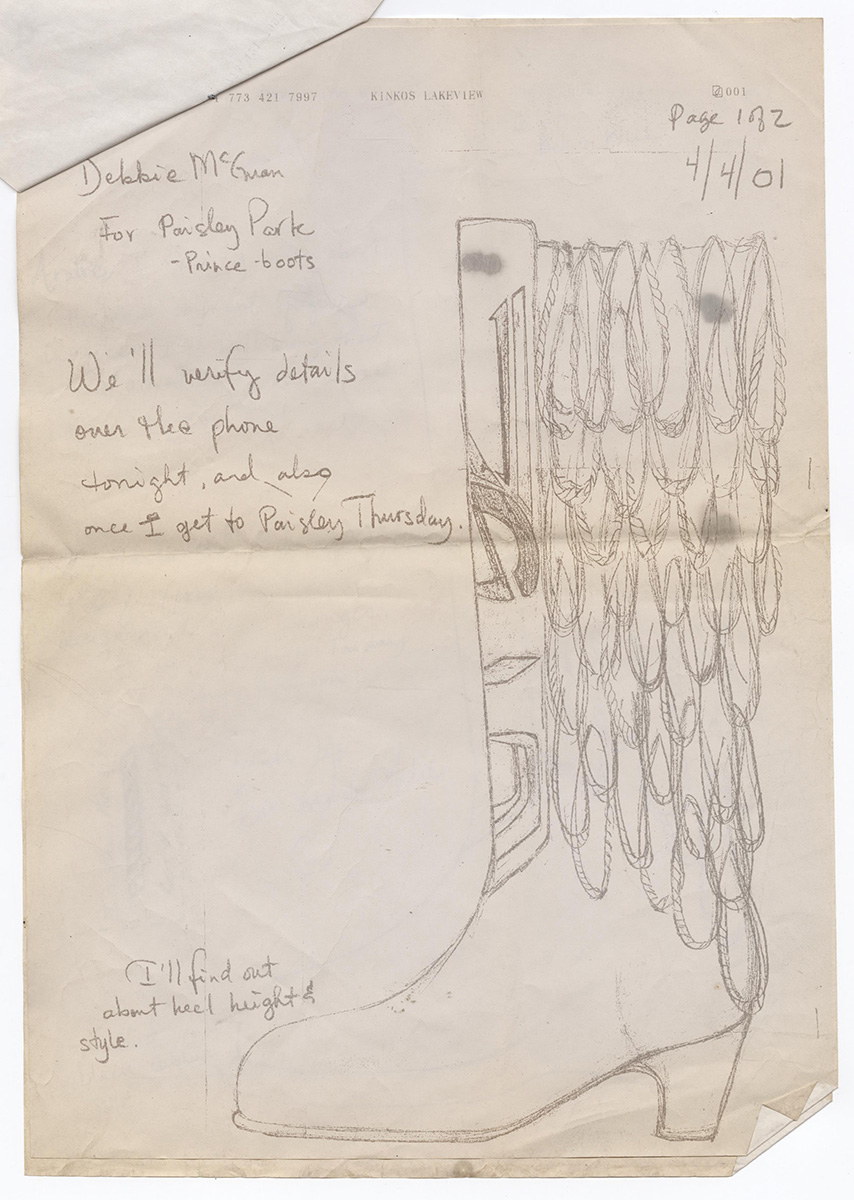 773 421 7997 KINKOS LAKEVIEW 001
Page 1 of 2
4/4/01
Debbie McGuan
For Paisley Park
- Prince - boots
We'll verify details
over the phone
tonight, and also
once I get to Paisley Thursday.
I'll find out
about heel height &
style.